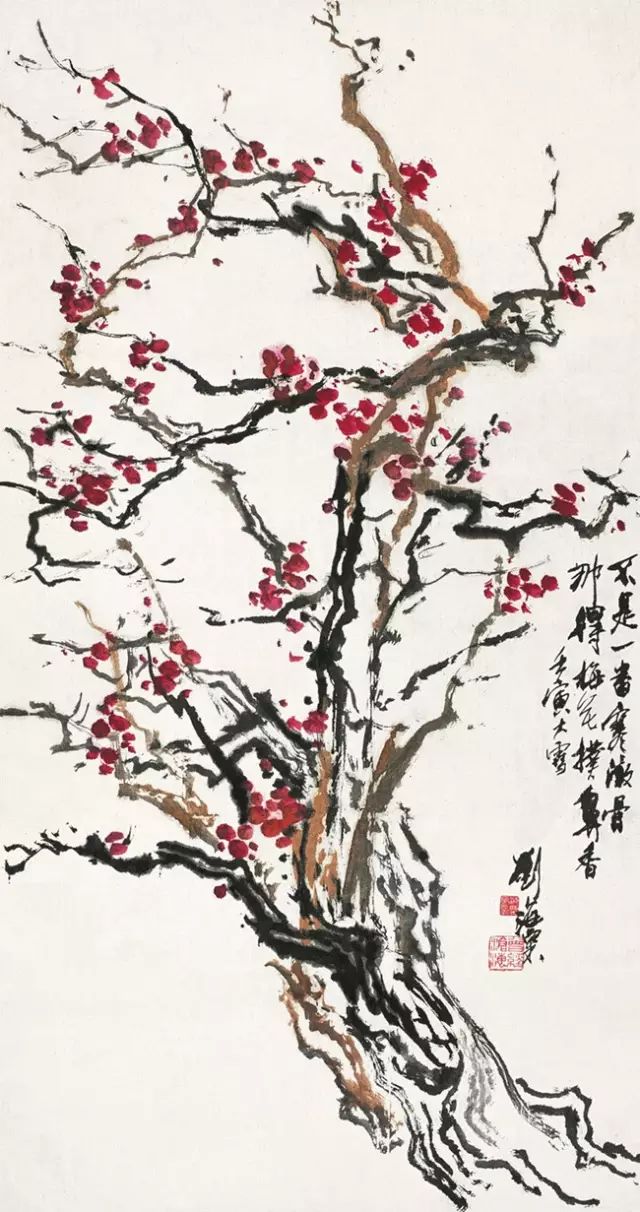 不是一番寒澈骨
那得梅花撲鼻香
壬寅大雪
劉海粟
曾經滄海